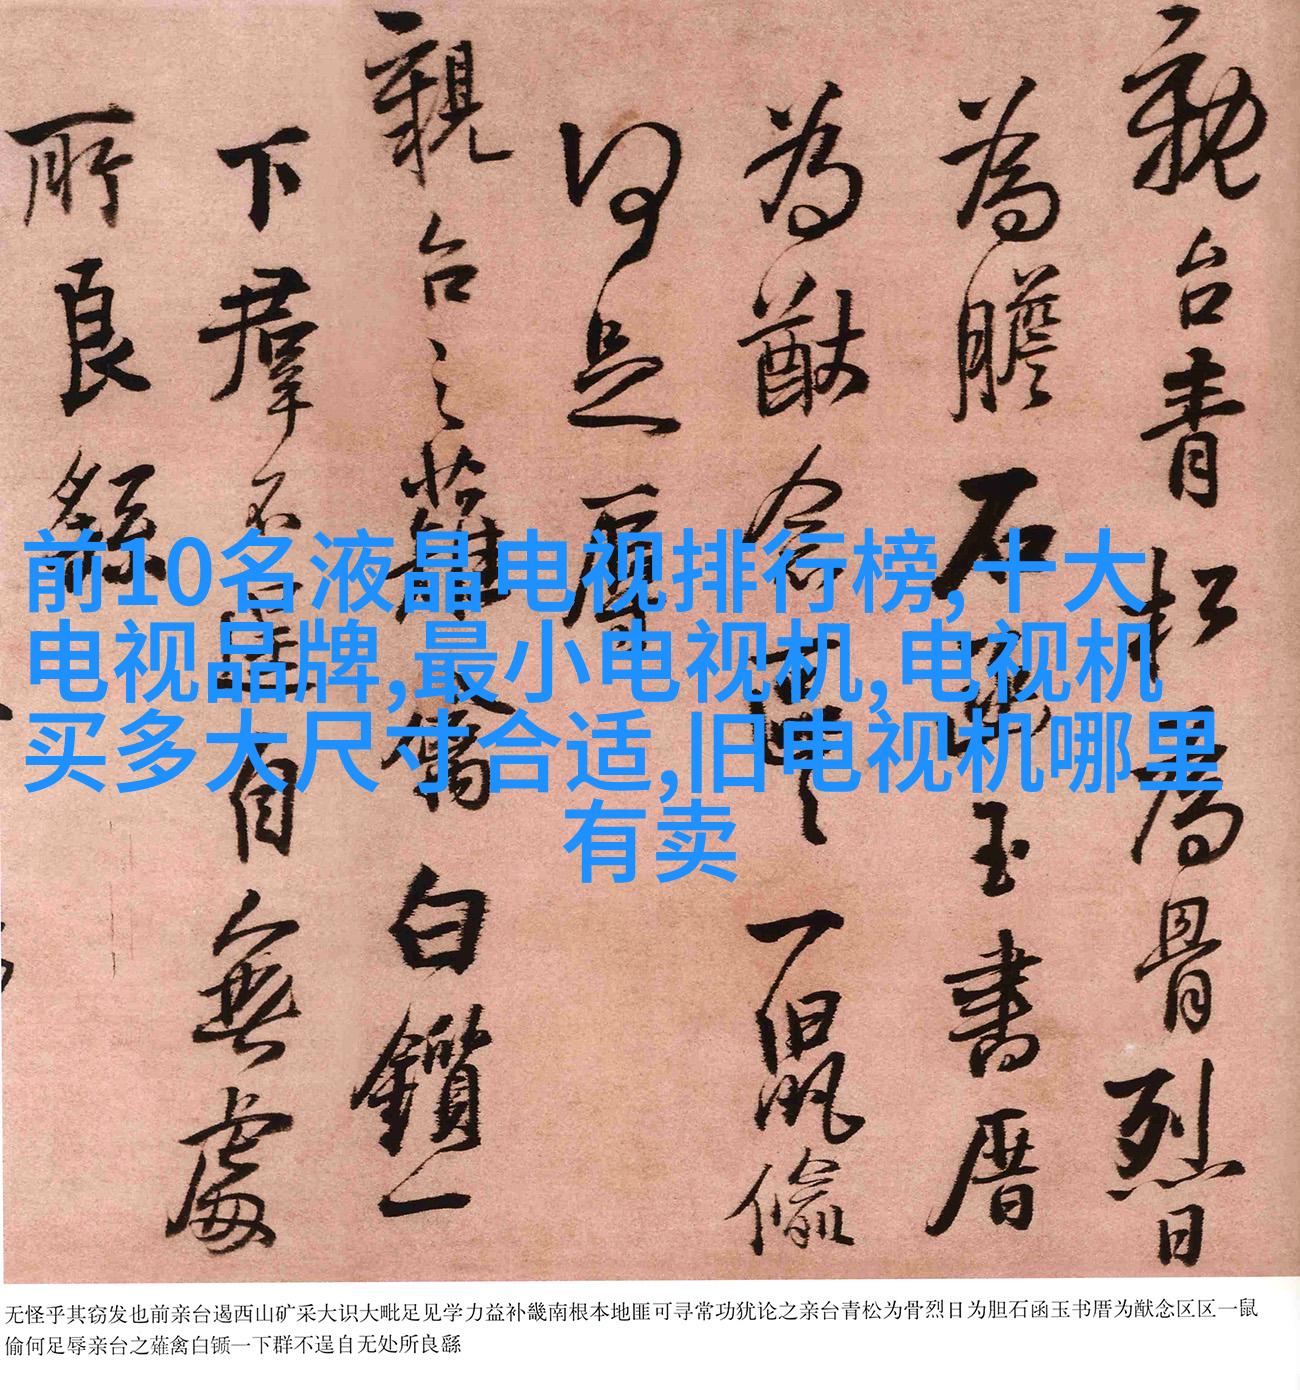 親台青松為骨烈日
為膽石函玉書厝
為猷念區區一鼠偷
何足辱
親台之薙禽白鑕一
下群不逞自無處
所良繇
前10名液晶电视排行榜,十大
电视品牌,最小电视机,电视机
买多大尺寸合适,旧电视机哪里
有卖
无怪乎其窃发也前亲台遏西山矿采大识大毗足见学力益补畿南根本地匪可寻常功犹论之亲台青松为骨烈日为胆石函玉书厝为猷念区区一鼠
偷何足辱亲台之薙禽白锧一下群不逞自无处所良繇